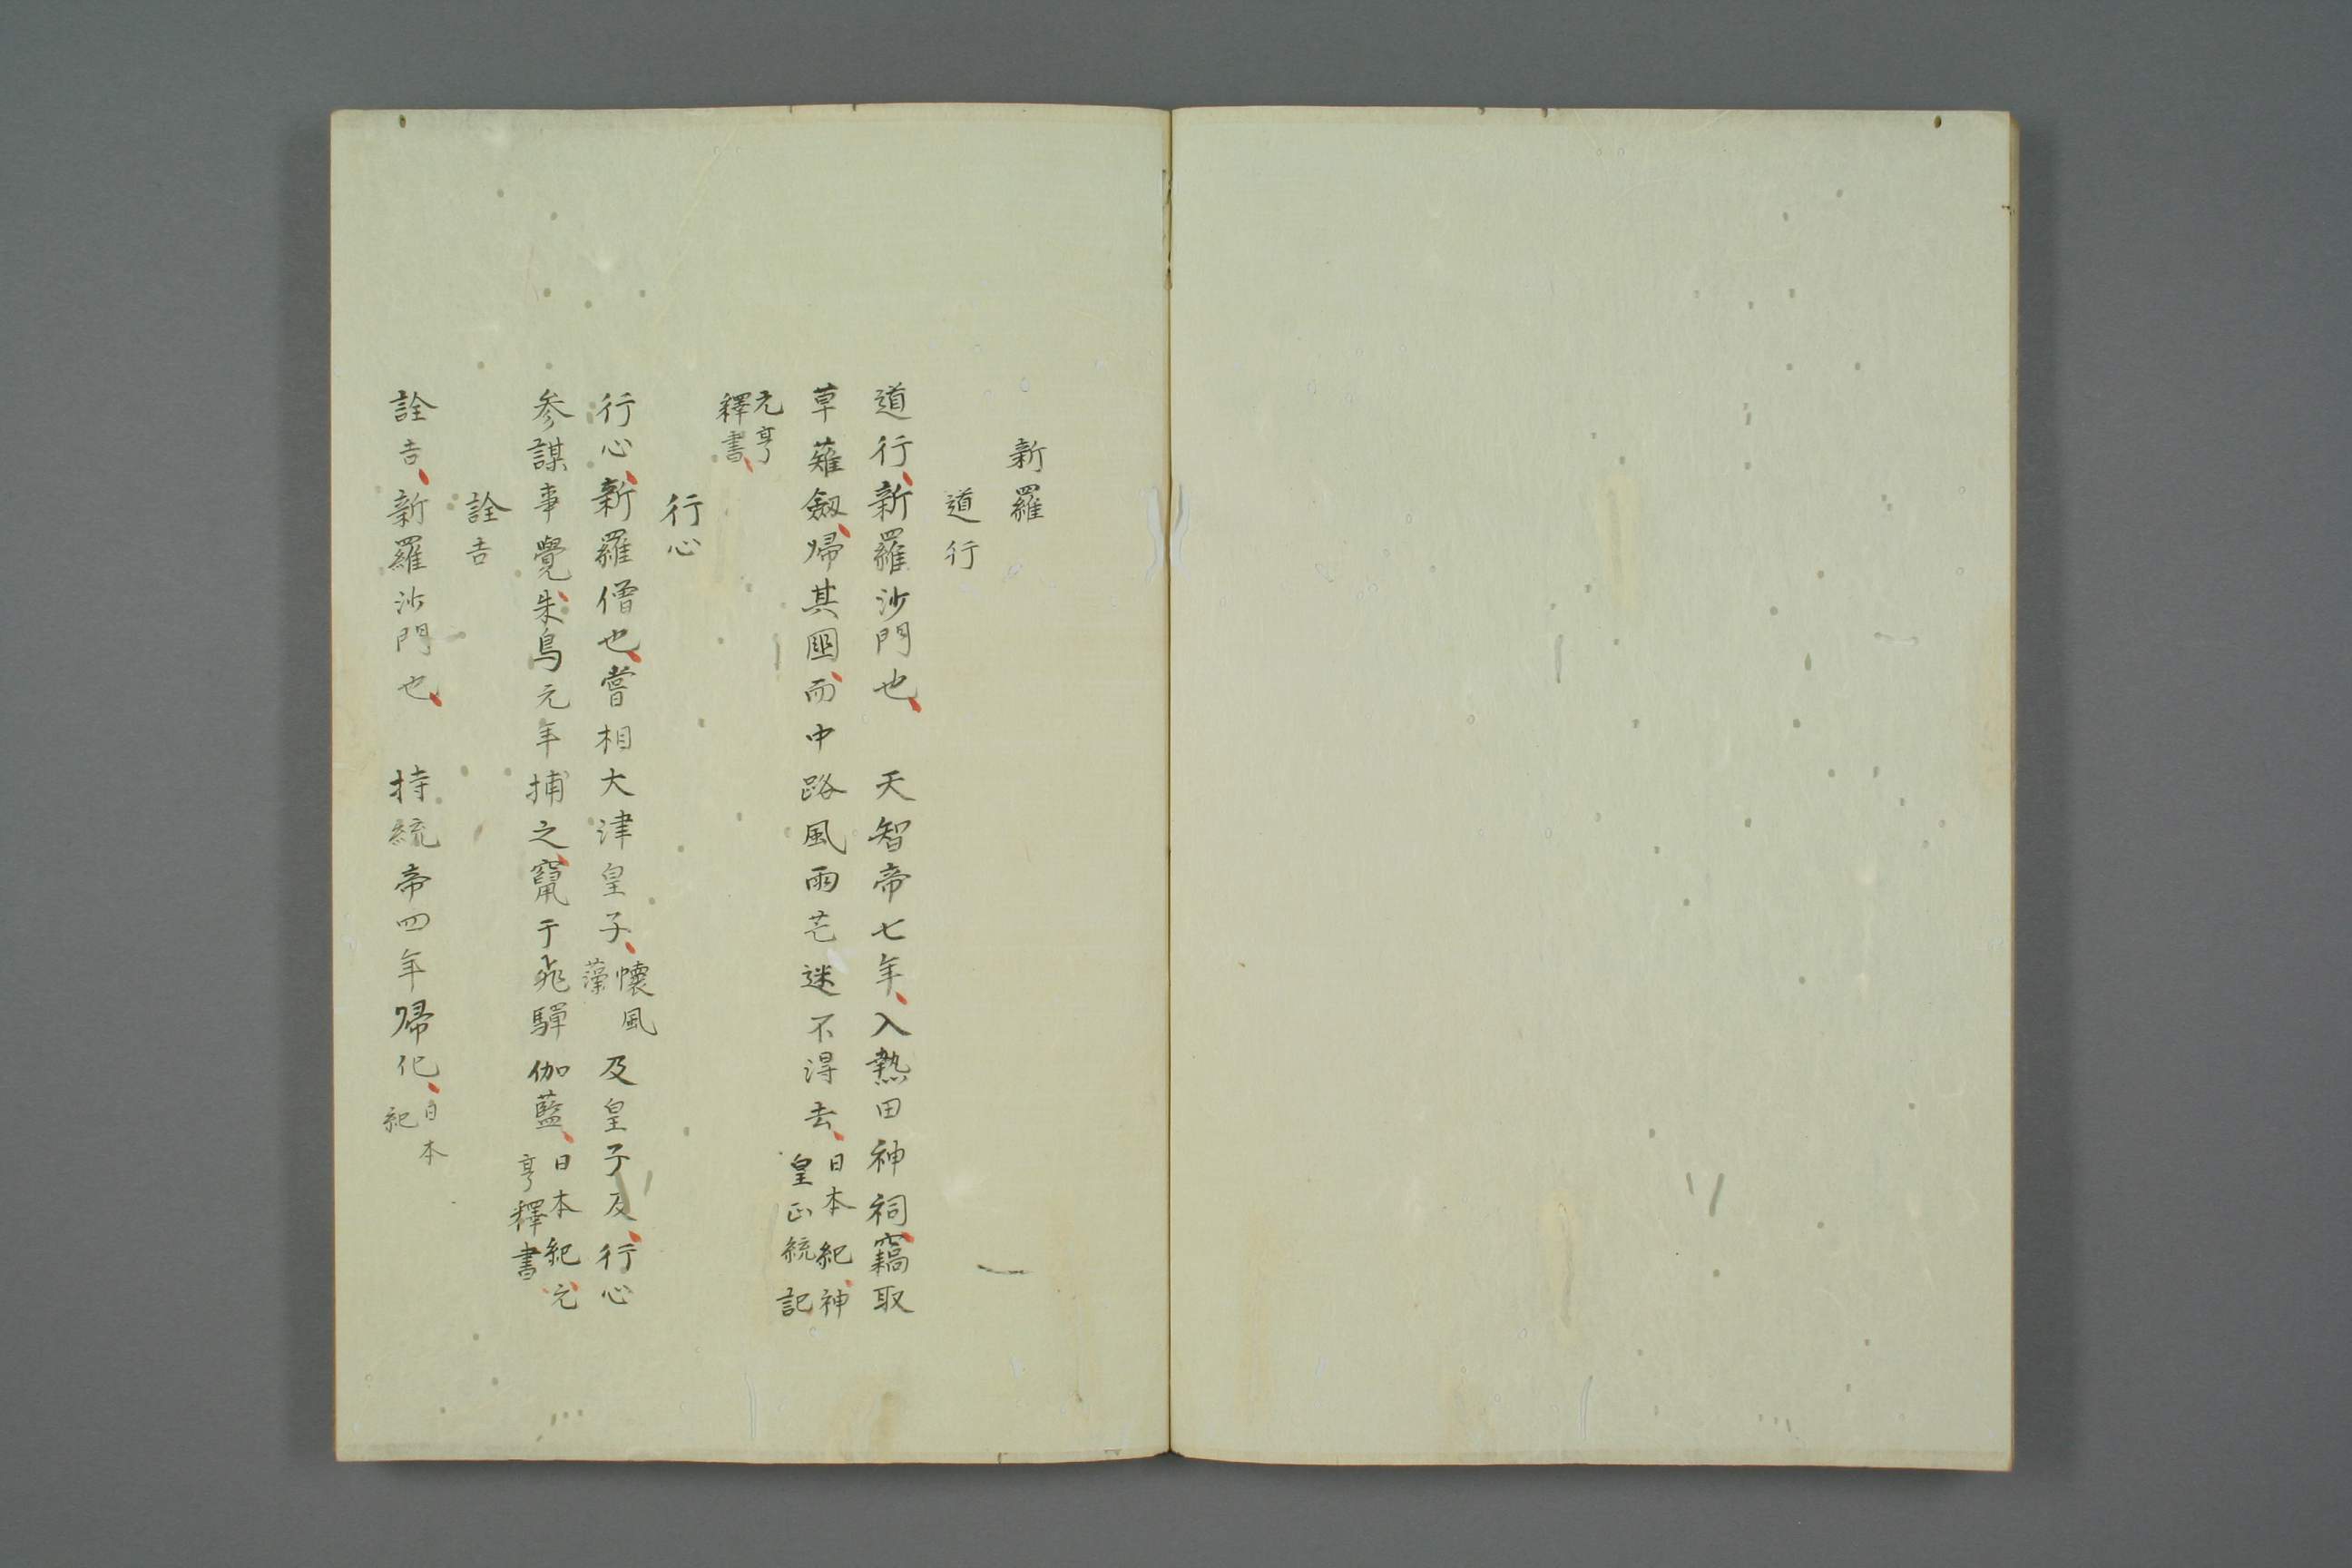 新羅
道行
道行、新羅沙門也、　天智帝七年、入熱田神祠、竊取
草薙劔、帰其國、而中路風雨芒迷不得去、日本紀、神皇正統記
元亨釋書、
行心
行心、新羅僧也、嘗相大津皇子、懐風藻 及皇子反、行心
参謀事覺、朱鳥元年捕之、竄于飛驒伽藍、日本紀、元亨釋書
詮吉
詮吉、新羅沙門也、　持統帝四年帰化、日本紀